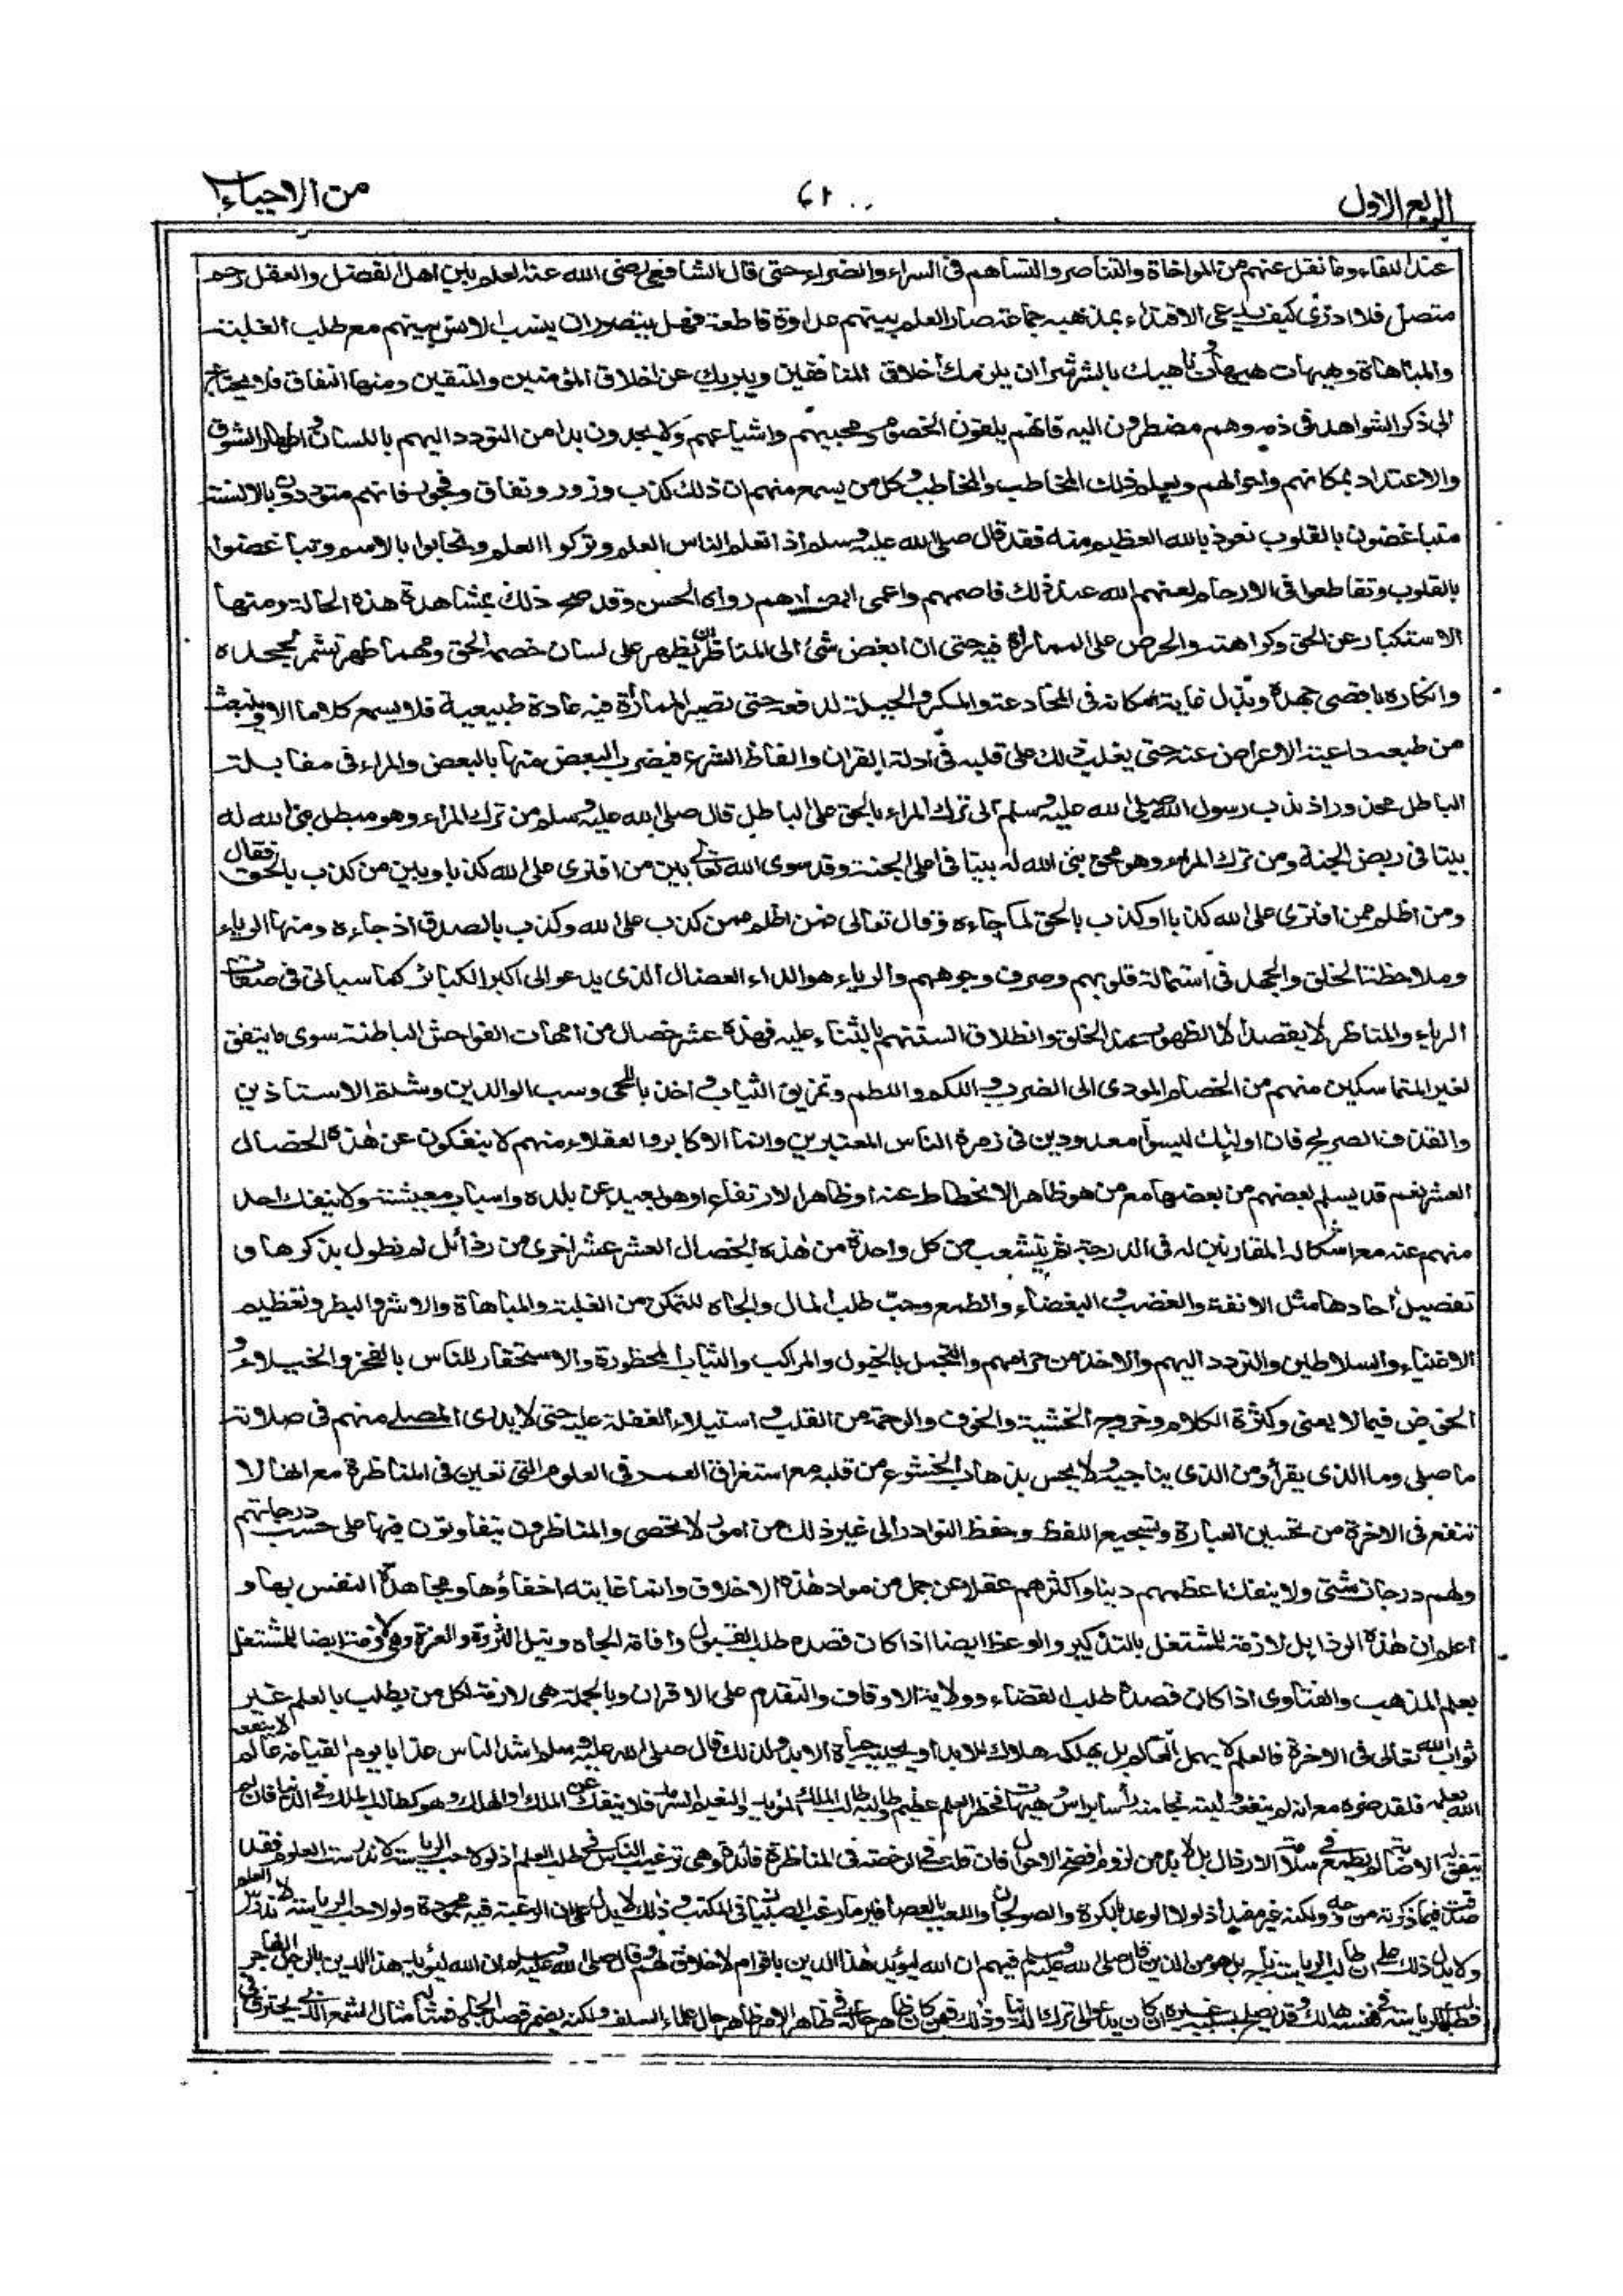 الربع الاول
٤١
من الاحياء
عند اللقاء وما نقل عنهم من المواخاة والتناصر والتساهم فى السراء والضراء حتى قال الشافعى رضى الله عنه العلم بين اهل الفضل والعقل رحم
متصل فلا ادرى كيف يدعى الاقتداء بمذهبه جماعة صار العلم بينهم عداوة قاطعة فهل يتصوران ينسب الانس بينهم مع طلب الغلبة
والمباهاة وهيهات هيهات وناهيك بالشر شرا ان يلزمك اخلاق المنافقين ويبريك عن اخلاق المؤمنين والمتقين ومنها النفاق فلا يحتاج
الى ذكر الشواهد فى ذمه وهم مضطرون اليه فانهم يلقون الخصوم ومحبيهم واشياعهم ولا يجدون بدا من التودد اليهم باللسان واظهار الشوق
والاعتداد بمكانهم واحوالهم ويعلم ذلك المخاطب والمخاطب وكل من يسمع منهم ان ذلك كذب وزور ونفاق وفجور فانهم متوددون بالالسنة
متباغضون بالقلوب نعوذ بالله العظيم منه فقد قال صلى الله عليه وسلم اذا تعلم الناس العلم وتركوا العلم وتحابوا بالالسن وتباغضوا
بالقلوب وتقاطعوا فى الارحام لعنهم الله عند ذلك فاصمهم واعمى ابصارهم رواه الحسن وقد صح ذلك بمشاهدة هذه الحالة ومنها
الاستكبار عن الحق وكراهته والحرص على المماراة فيه حتى ان ابغض شئ الى المناظر ان يظهر على لسان خصمه الحق ومهما ظهر تشمر لجحده
وانكاره باقصى جهده وبذل غاية امكانه فى المخادعة والمكر والحيلة لدفعه حتى تصير المماراة فيه عادة طبيعية فلا يسمع كلاما الا وينبعث
من طبعه داعية الاعراض عنه حتى يغلب ذلك على قلبه فى ادلة القران والفاظ الشرع فيضرب البعض منها بالبعض والمراء فى مقابلة
الباطل محذور اذ ندب رسول الله صلى الله عليه وسلم الى ترك المراء بالحق على الباطل قال صلى الله عليه وسلم من ترك المراء وهو مبطل بنى الله له
بيتا فى ربض الجنة ومن ترك المراء وهو محق بنى الله له بيتا فى اعلى الجنة وقد سوى الله تعالى بين من افترى على الله كذبا وبين من كذب بالحق فقال
ومن اظلم ممن افترى على الله كذبا او كذب بالحق لما جاءه وقال تعالى فمن اظلم ممن كذب على الله وكذب بالصدق اذ جاءه ومنها الرياء
وملاحظة الخلق والجهد فى استمالة قلوبهم وصرف وجوههم والرياء هو الداء العضال الذى يدعو الى اكبر الكبائر كما سياتى فى صفات
الرياء والمناظر لا يقصد الا الظهور عند الخلق وانطلاق السنتهم بالثناء عليه فهذه عشر خصال من امهات الفواحش الباطنة سوى ما يتفق
لغير المتماسكين منهم من الخصام المودى الى الضرب واللكم واللطم وتمزيق الثياب واخذ باللحى وسب الوالدين وشتم الاستاذين
والقذف الصريح فان اولئك ليسوا معدودين فى زمرة الناس المعتبرين وانما الاكابر والعقلاء منهم لا ينفكون عن هذه الخصال
العشر نعم قد يسلم بعضهم من بعضها مع من هو ظاهر الانحطاط عنه او ظاهر الارتفاع او هو بعيد عن بلده واسباب معيشته ولا ينفك احد
منهم عنه مع اشكاله المقارنين له فى الدرجة ثم يتشعب من كل واحدة من هذه الخصال العشر عشر اخرى من رذائل لم نطول بذكرها و
تفصيل احادها مثل الانفة والغضب والبغضاء والطمع وحب طلب المال والجاه للتمكن من الغلبة والمباهاة والاشر والبطر وتعظيم
الاغنياء والسلاطين والتردد اليهم والاخذ من حرامهم والتجمل بالخيول والمراكب والثياب المحظورة والاستحقار للناس بالفخر والخيلاء و
الخوض فيما لا يعنى وكثرة الكلام وخروج الخشية والخوف والرحمة من القلب واستيلاء الغفلة عليه حتى لا يدرى المصلى منهم فى صلاته
ما صلى وما الذى يقرأ ومن الذى يناجيه ولا يحس بذهاب الخشوع من قلبه مع استغراق العمر فى العلوم التى تعين فى المناظرة مع انها لا
تنفع فى الاخرة من تحسين العبارة وتسجيع اللفظ وحفظ النوادر الى غير ذلك من امور لا تحصى والمناظرون يتفاوتون فيها على حسب درجاتهم
ولهم درجات شتى ولا ينفك اعظمهم دينا واكثرهم عقلا عن جمل من مواد هذه الاخلاق وانما غايته اخفاؤها ومجاهدة النفس بها و
اعلم ان هذه الرذايل لازمة للمشتغل بالتذكير والوعظ ايضا اذا كان قصده طلب القبول واقامة الجاه ونيل الثروة والعزة وهى لازمة ايضا للمشتغل
بعلم المذهب والفتاوى اذا كان قصده طلب القضاء وولاية الاوقاف والتقدم على الاقران وبالجملة هى لازمة لكل من يطلب بالعلم غير
ثواب الله تعالى فى الاخرة فالعلم لا يهمل العالم بل يهلكه هلاك الابد او يحييه حياة الابد ولذلك قال صلى الله عليه وسلم اشد الناس عذابا يوم القيامة عالم لا ينفعه
الله بعلمه فلقد ضره مع انه لم ينفعه وليته نجا منه رأسا برأس وهيهات فخطر العلم عظيم وطالبه طالب الملك المؤبد والنعيم السرمد فلا ينفك عن الملك او الهلك وهو كطالب الملك فى الدنيا فان لم
يتفق له الاصابة لم يطمع فى سلامة الارذال بل لا بد من لزوم افضح الاحوال فان قلت فى الرخصة فى المناظرة فائدة وهى ترغيب الناس فى طلب العلم اذ لولا حب الرياسة لاندرست العلوم فقد
صدقت فيما ذكرته من وجه ولكنه غير مفيد اذ لولا الوعد بالكرة والصولجان واللعب بالعصافير ما رغب الصبيان فى المكتب وذلك لا يدل على ان الرغبة فيه محمودة ولولا حب الرياسة لاندرس العلم
ولا يدل ذلك على ان طالب الرياسة ناج بل هو من الذين قال صلى الله عليه وسلم فيهم ان الله ليؤيد هذا الدين باقوام لا خلاق لهم وقال صلى الله عليه وسلم ان الله ليؤيد هذا الدين بالرجل الفاجر
فطالب الرياسة فى نفسه هالك وقد يصلح بسببه غيره ان كان يدعو الى ترك الدنيا وذلك فيمن كان ظاهر حاله فى ظاهر الامر ظاهر حال علماء السلف ولكنه يضمر قصد الجاه فمثاله مثال الشمع الذى يحترق فى